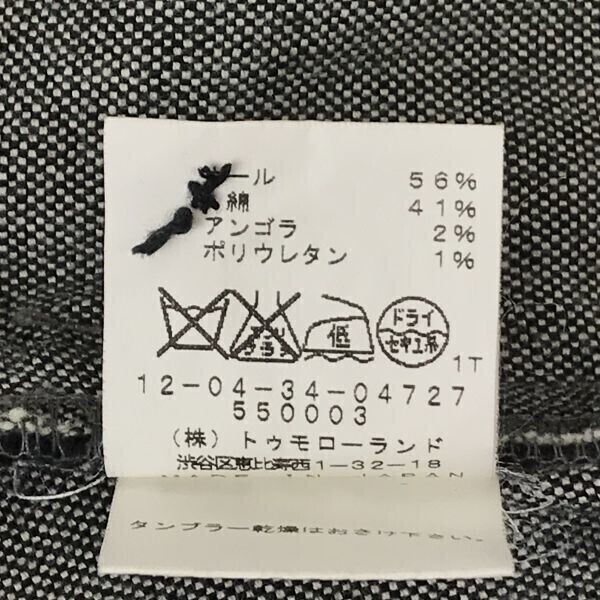 ール 56%
綿 41%
アンゴラ 2%
ポリウレタン 1%
低 ドライ
セキユ系
1T
12-04-34-04727
550003
(株) トゥモローランド
渋谷区恵比寿西1-32-18
MADE IN JAPAN
タンブラー乾燥はおさけ下さい。